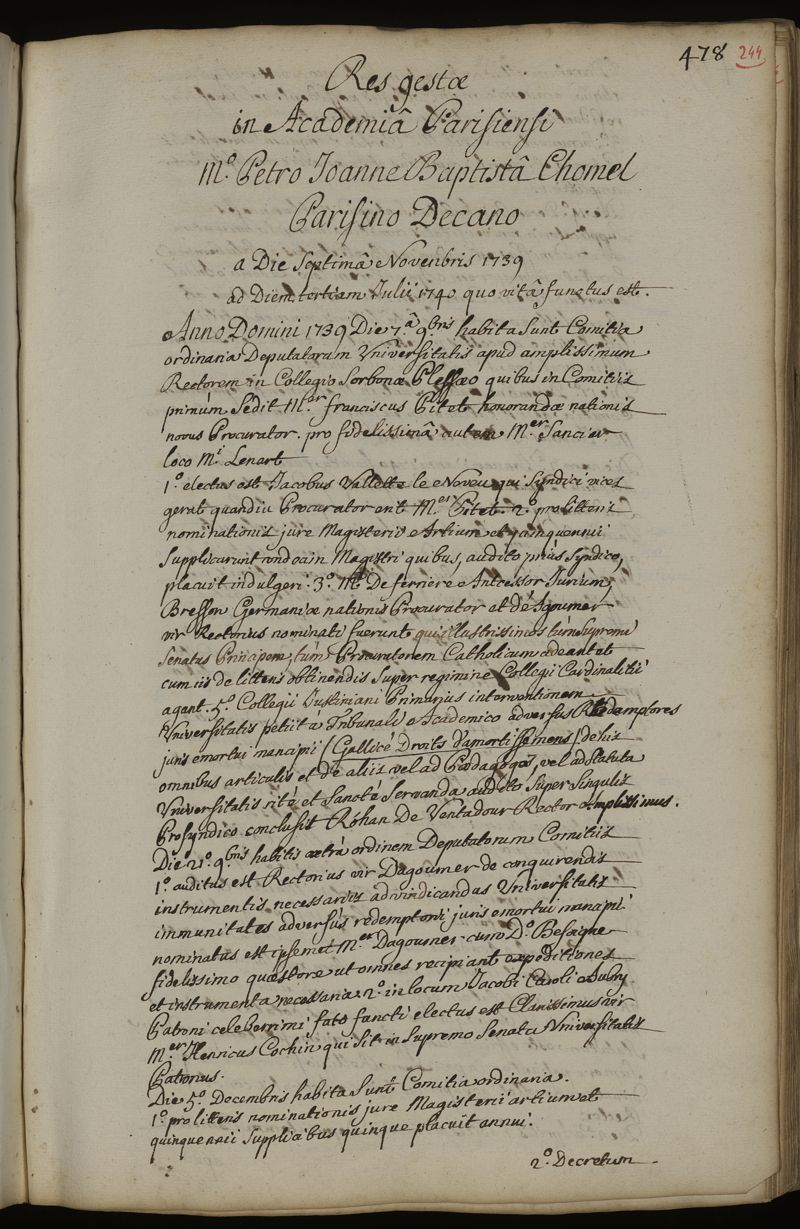 478 244
Res gestæ
in Academiâ Parisiensi
M.º Petro Joanne Baptistâ Chomel
Parisino Decano
a Die Septimâ Novenbris 1739
ad Diem tertiam Julii 1740 quo vitâ functus est.
Anno Domini 1739 Die 7.â 9bris habita sunt Comitia
ordinaria Deputatorum Universitatis apud amplissimum
Rectorem in Collegio Sorbonæ Plessæo quibus in Comitiis
primùm Sedit M.er franciscus Pitet honorandæ nationis
novus Procurator. pro fidelissimâ autem M.er Sancier
loco M.i Lenart
1.º electus est Jacobus Vallette le Neveu qui Syndici vices
gerat quandiu Procurator erit M.er Pitet. 2.º pro litteris
nominationis jure Magisterii Artium et quinquennii
Supplicarunt undecim Magistri quibus, audito priùs Syndico,
placuit indulgeri. 3.º M.i De ferriere Antecessor Jurium,
Bresson Germaniæ nationis Procurator et Dagoumer
vir Rectorius nominati fuerunt qui illustrissimos tùm Supremi
Senatus Principem, tùm Procuratorem Catholicum adeant et
cum iis de litteris obtinendis Super regimine Collegi Cardinalitii
agant. 5.º Collegii Justiniani Primarius interventionem
Universitatis petiit à Tribunali Academico adversus Redemptores
juris emortui mancipii (Gallicè Droits d'amortissemens) de iis
omnibus articulis et de aliis vel ad Pædagogos, vel ad Statuta
Universitatis ritè et Sanctè Servanda audito Super Singulis
Prosyndico conclusit Rohan De Ventadour Rector amplissimus.
Die 21.º 9bris habitis extrà ordinem Deputatorum Comitiis
1.º auditus est Rectorius vir Dagoumer de conquirendis
instrumentis necessariis ad vindicandas Universitatis
immunitates adversùs redemptori juris emortui mancipii
nominatus est ipsemet M.er Dagoumer cum D.º Besogne
fidelissimo quæstore ut omnes recipiant expeditiones
et instrumenta necessaria 2.º in locum Jacobi Caroli Aubry
Patroni celeberrimi fato functi electus est Clarissimus vir
M.er Henricus Cochin qui Sit in Supremo Senatu Universitatis
Patronus.
Die 5.º Decembris habita Sunt Comitia ordinaria.
1.º pro litteris nominationis jure Magisterii artium et
quinquennii Supplicibus quinque placuit annui.
2.º Decretum